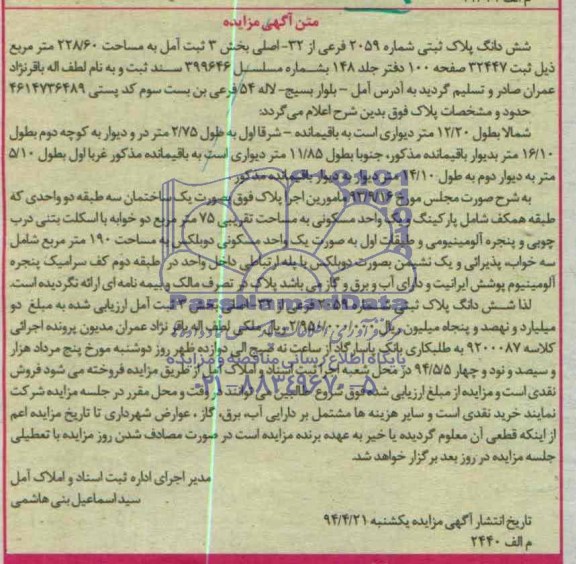 متن آگهی مزایده
شش دانگ پلاک ثبتی شماره ۲۰۵۹ فرعی از ۳۲- اصلی بخش ۳ ثبت آمل به مساحت ۲۲۸/۶۰ متر مربع
ذیل ثبت ۳۲۴۴۷ صفحه ۱۰۰ دفتر جلد ۱۴۸ بشماره مسلسل ۳۹۹۶۴۶ سند ثبت و به نام لطف اله باقرنژاد
عمران صادر و تسلیم گردید به آدرس آمل – بلوار بسیج- لاله ۵۴ فرعی بن بست سوم کد پستی ۴۶۱۴۷۳۶۴۸۹
حدود و مشخصات پلاک فوق بدین شرح اعلام می گردد:
شمالا بطول ۱۲/۲۰ متر دیواری است به باقیمانده – شرقا اول به طول ۲/۷۵ متر در و دیوار به کوچه دوم بطول
۱۶/۱۰ متر بدیوار باقیمانده مذکور، جنوبا بطول ۱۱/۸۵ متر دیواری است به باقیمانده مذکور غربا اول بطول ۵/۱۰
متر به دیوار دوم به طول ۱۴/۱۰ متر دیوار به دیوار باقیمانده مذکور
به شرح صورت مجلس مورخ ۹۳/۹/۱۶ مامورین اجرا پلاک فوق بصورت یک ساختمان سه طبقه دو واحدی که
طبقه همکف شامل پارکینگ و یک واحد مسکونی به مساحت تقریبی ۷۵ متر مربع دو خوابه با اسکلت بتنی درب
چوبی و پنجره آلومینیومی و طبقات اول به صورت یک واحد مسکونی دوبلکس به مساحت ۱۹۰ متر مربع شامل
سه خواب، پذیرائی و یک نشیمن بصورت دوبلکس با پله ارتباطی داخل واحد در طبقه دوم کف سرامیک پنجره
آلومینیوم پوشش ایرانیت و دارای آب و برق و گاز می باشد پلاک در تصرف مالک و بیمه نامه ای ارائه نگردیده است.
لذا شش دانگ پلاک ثبتی شماره ۲۰۵۹ فرعی از ۳۲ اصلی بخش ۳ ثبت آمل ارزیابی شده به مبلغ دو
میلیارد و نهصد و پنجاه میلیون ریال ملکی لطف اله باقر نژاد عمران مدیون پرونده اجرائی
کلاسه ۹۲۰۰۰۸۷ به طلبکاری بانک پاسارگاد از ساعت نه صبح الی دوازده ظهر روز دوشنبه مورخ پنج مرداد هزار
و سیصد و نود و چهار ۹۴/۵/۵ در محل شعبه اجرا ثبت اسناد و املاک آمل از طریق مزایده فروخته می شود فروش
نقدی است و مزایده از مبلغ ارزیابی شده فوق شروع طالبین می توانند در وقت و محل مقرر در جلسه مزایده شرکت
نمایند خرید نقدی است و سایر هزینه ها مشتمل بر دارایی آب، برق، گاز ، عوارض شهرداری تا تاریخ مزایده اعم
از اینکه قطعی آن معلوم گردیده یا خیر به عهده برنده مزایده است در صورت مصادف شدن روز مزایده با تعطیلی
جلسه مزایده در روز بعد برگزار خواهد شد.
مدیر اجرای اداره ثبت اسناد و املاک آمل
سید اسماعیل بنی هاشمی
تاریخ انتشار آگهی مزایده یکشنبه ۹۴/۴/۲۱
م الف ۲۴۴۰
ParsNamadData
پایگاه اطلاع رسانی مناقصه و مزایده
۰۲۱-۸۸۳۴۹۶۷۰-۵